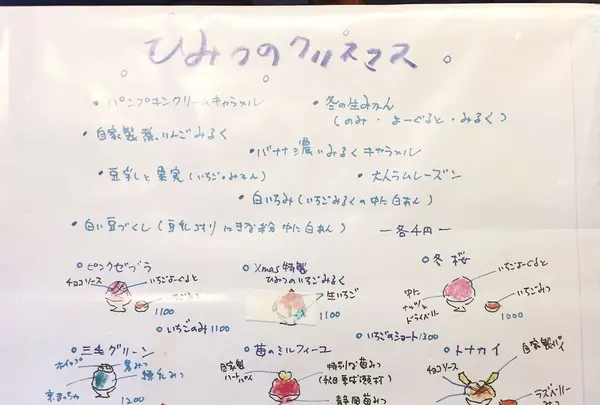 ひみつのクリスマス
・パンプキンクリームキャラメル
・冬の生みかん
(のみ・よーぐると・みるく)
・自家製 煮りんごみるく
・バナナ濃いみるくキャラメル
・豆乳と果実(いちご・みかん)
・大人ラムレーズン
・白いちみ(いちごみるくの中に白あん)
・白い豆づくし(豆乳氷 にきな粉 中に白あん)
ー各4円ー
○ピンクゼブラ
チョコソース
いちごよーぐると
1100
○Xmas特製
ひみつのいちごみるく
生いちご
1100
○冬桜
中に
ナッツと
ドライベリー
いちごみつ
1000
○いちごのみ 1100
○いちごのショート 1200
ホイップ
京まっちゃ
練乳みつ
1200
○苺のミルフィーユ
自家製
ハートパイ
特別な苺みつ
静岡苺みつ
○トナカイ
チョコソース
自家製パイ
ラズベリー